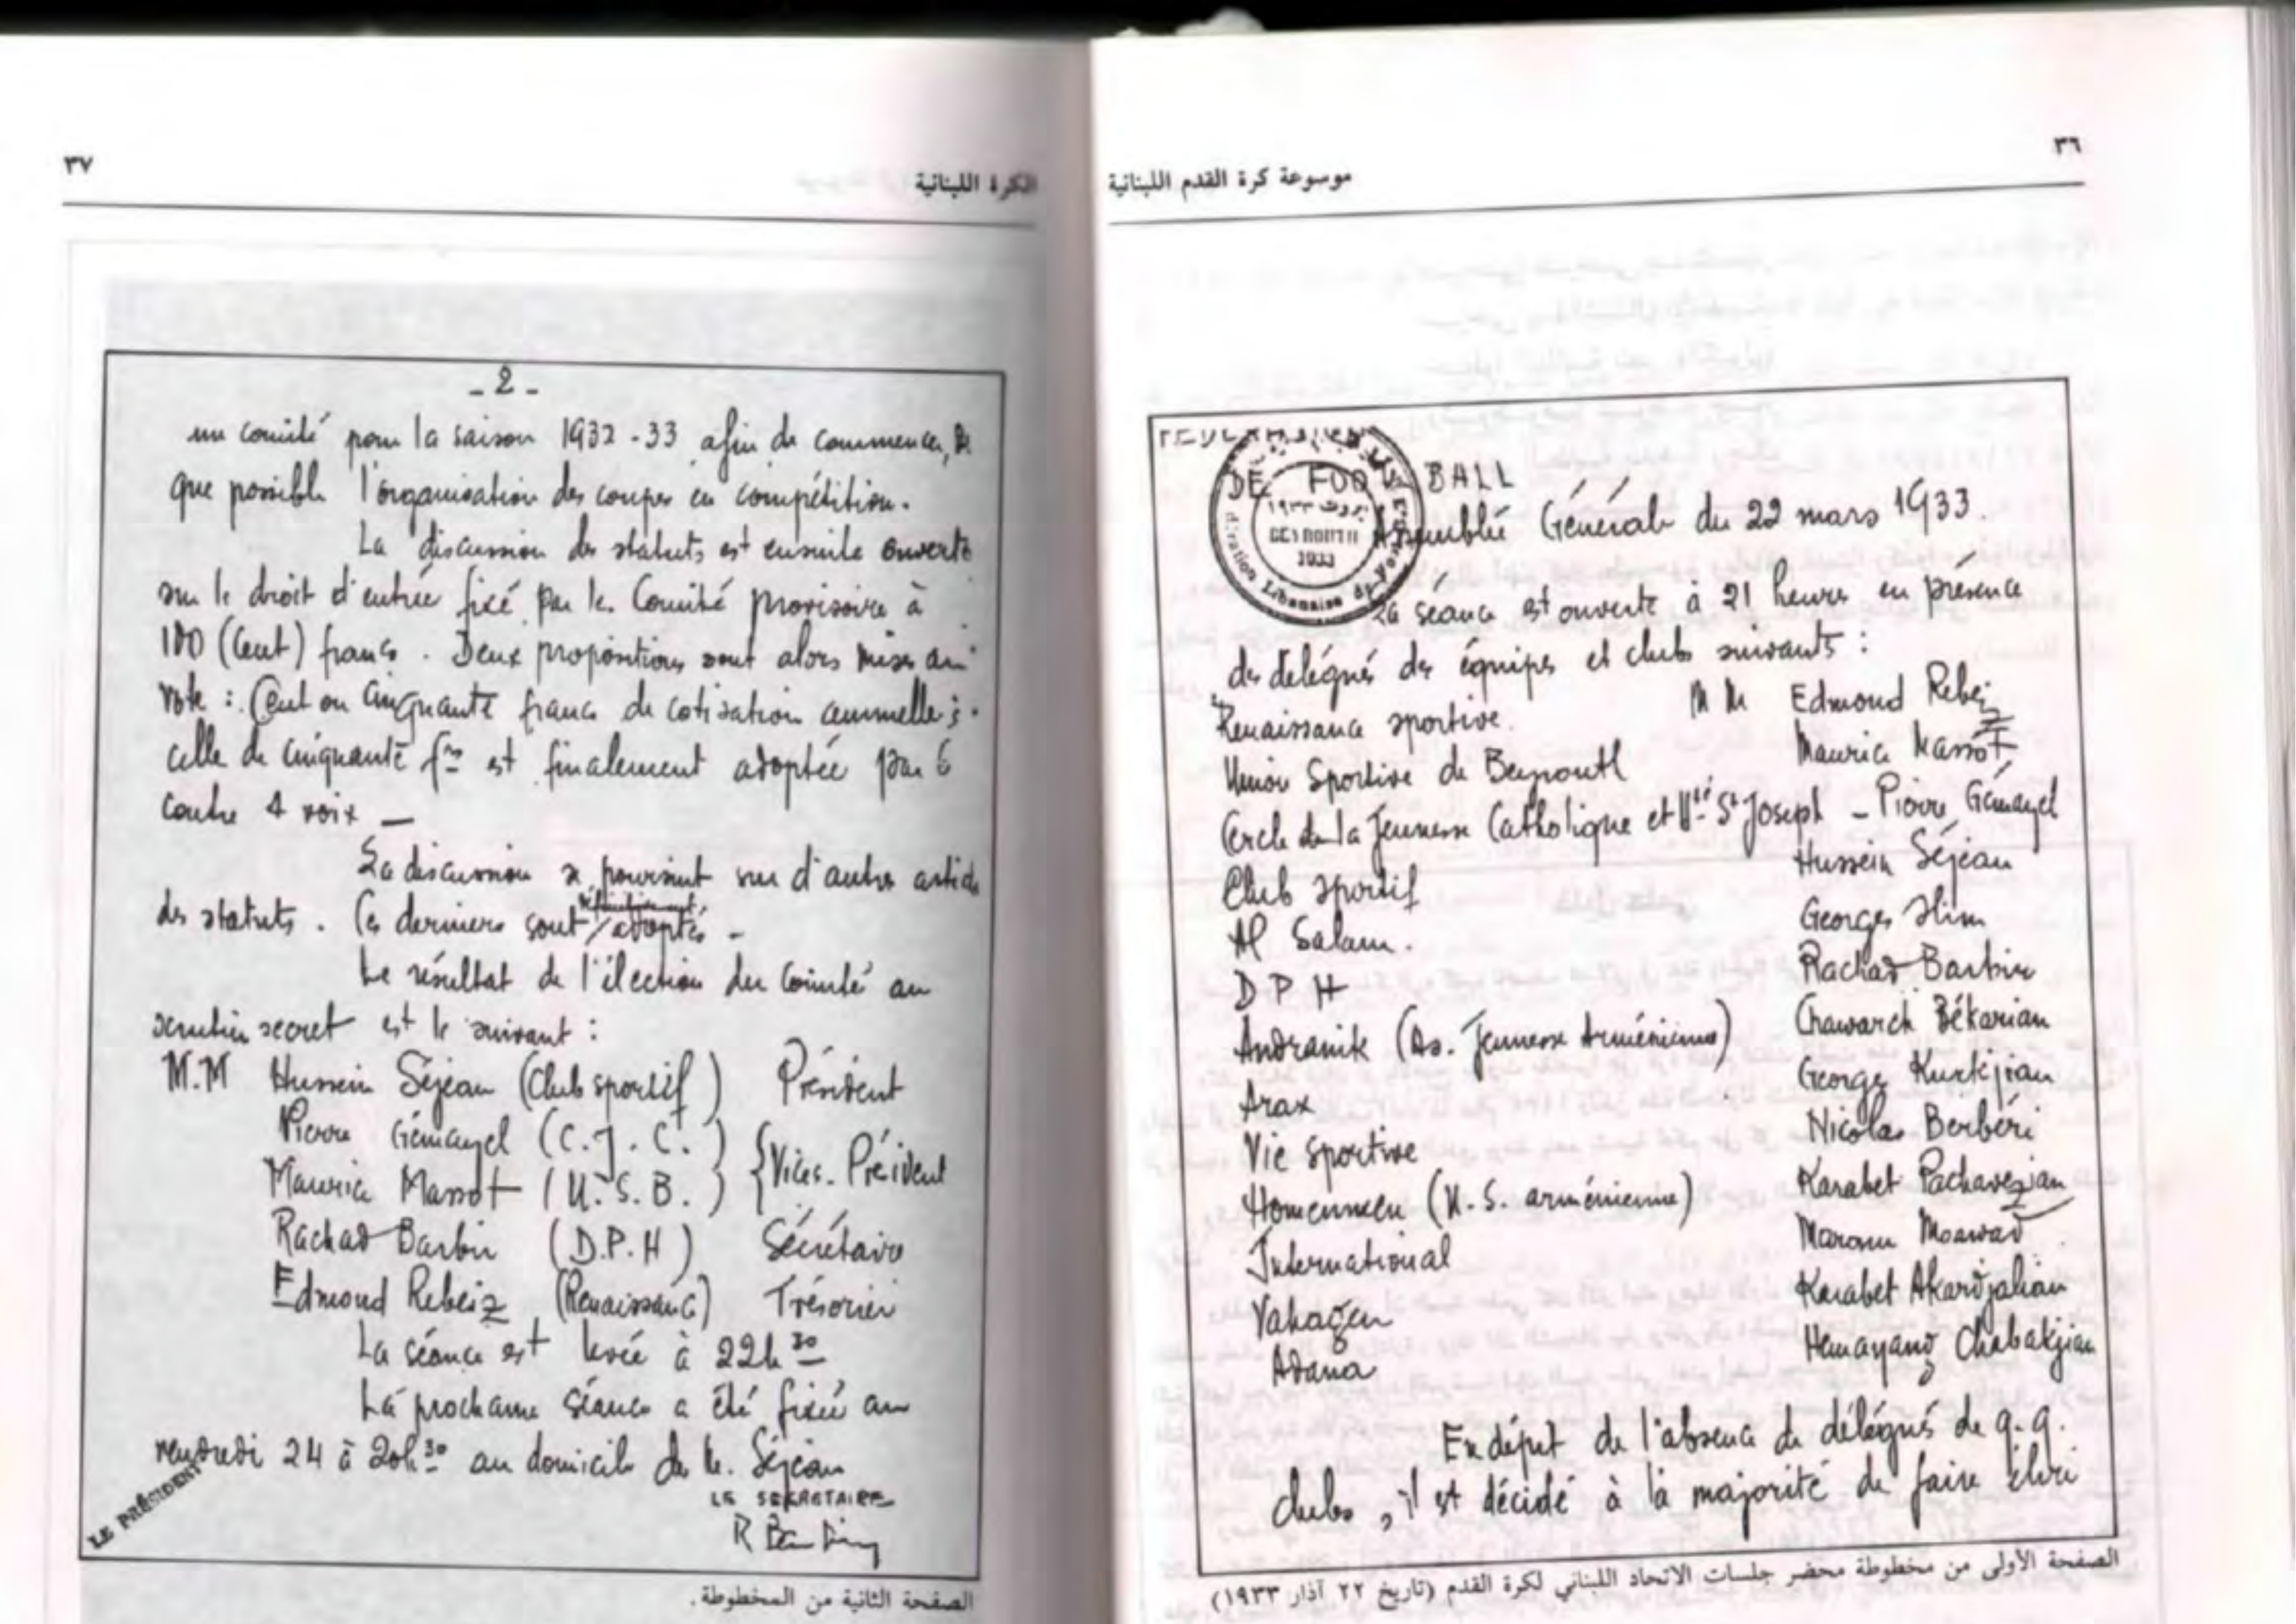 ٣٦
موسوعة كرة القدم اللبنانية
DE FOOT BALL
بيروت ١٩٣٣
BEYROUTH
1933
Fédération Libanaise de Foot
Assemblée Générale du 22 mars 1933.
La séance est ouverte à 21 heures en présence
des délégués des équipes et clubs suivants :
Renaissance sportive. MM Edmond Rebeiz
Union Sportive de Beyrouth Maurice Massot
Cercle de la Jeunesse Catholique et Uté St Joseph - Pierre Gémayel
Club sportif Hussein Séjéan
Al Salam. Georges Slim
D P H Rachad Barbir
Andranik (As. Jeunesse Arménienne) Chawarch Békarian
Arax George Kurkjian
Vie sportive Nicolas Berbéri
Homenmen (U.S. arménienne) Karabet Pachavezian
International Maroun Moawad
Vahagen Karabet Akardjalian
Adana Hemayang Chabakjian
En dépit de l'absence de délégués de q.q.
clubs, il est décidé à la majorité de faire élire
الصفحة الأولى من مخطوطة محضر جلسات الاتحاد اللبناني لكرة القدم (تاريخ ٢٢ آذار ١٩٣٣)
٣٧
الكرة اللبنانية
- 2 -
un comité pour la saison 1932-33 afin de commencer,
que possible l'organisation des coupes en compétition.
La discussion des statuts est ensuite ouverte
sur le droit d'entrée fixé par le Comité provisoire à
100 (Cent) francs. Deux propositions sont alors mises au
vote : Cent ou Cinquante francs de cotisation annuelle ;
celle de cinquante frs est finalement adoptée par 6
contre 4 voix —
La discussion se poursuit sur d'autres articles
des statuts. Ces derniers sont adoptés -
Le résultat de l'élection du Comité au
scrutin secret est le suivant :
M.M Hussein Séjéan (Club sportif) Président
Pierre Gémayel (C.J.C.)
Maurice Massot (U.S.B.) Vices-Président
Rachad Barbir (D.P.H) Sécrétaire
Edmond Rebeiz (Renaissance) Trésorier
La séance est levée à 22h 30
La prochaine séance a été fixée au
vendredi 24 à 20h 30 au domicile de M. Séjéan
LE PRÉSIDENT
LE SEKRETAIRE
R Barbir
الصفحة الثانية من المخطوطة.